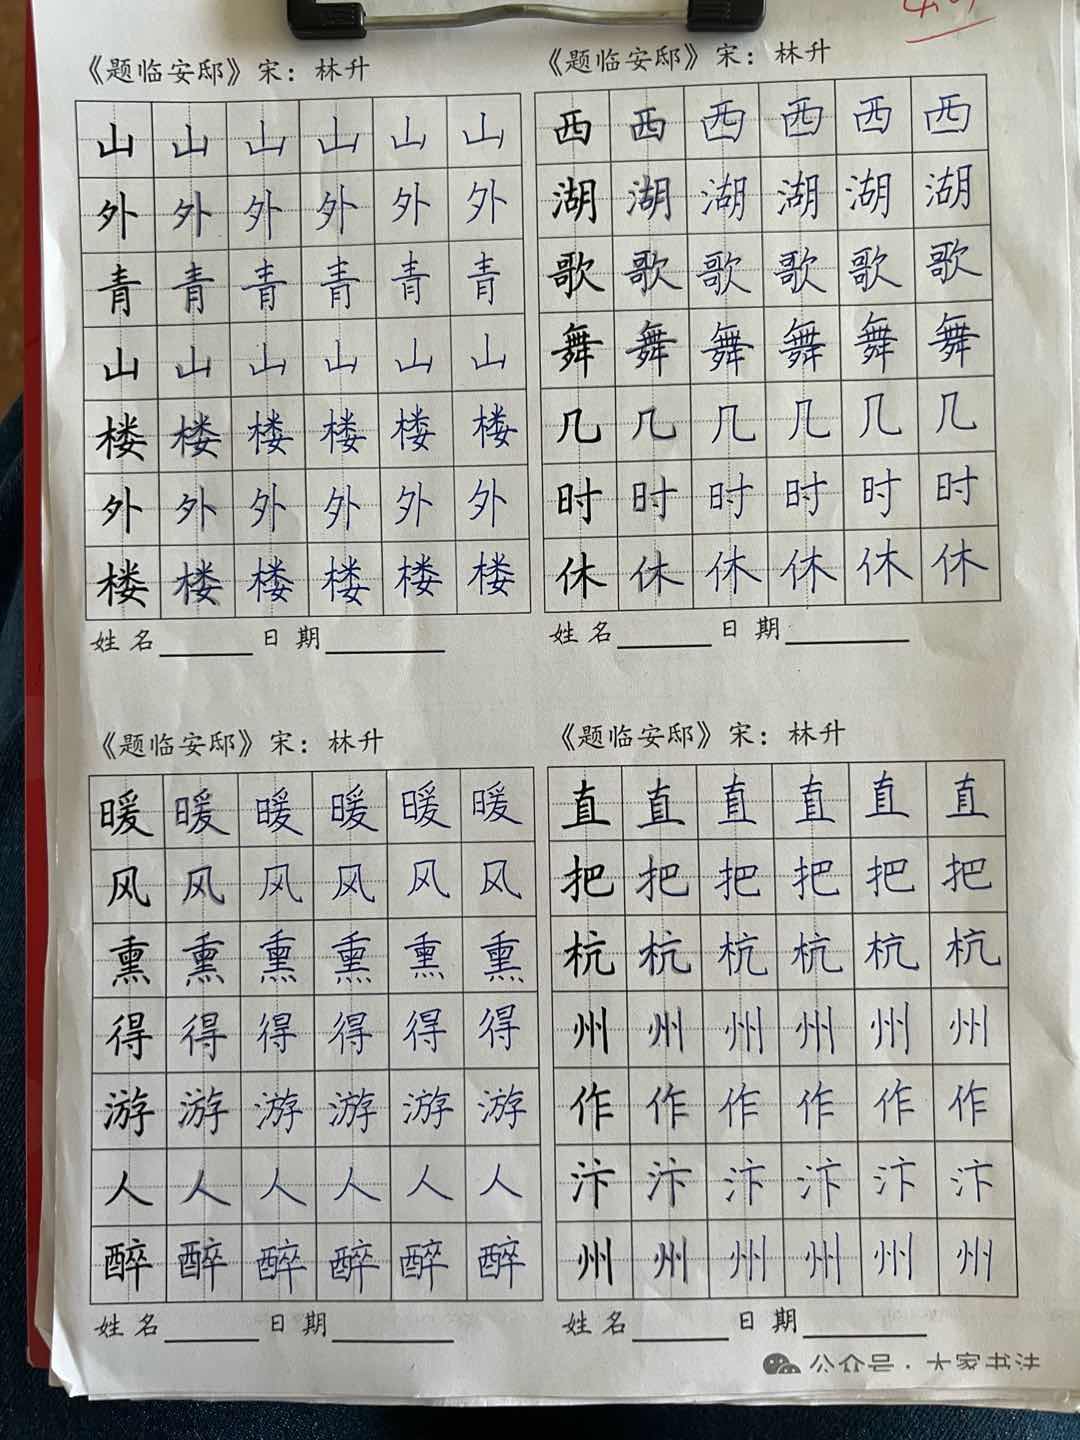 《题临安邸》宋：林升
山山山山山山
外外外外外外
青青青青青青
山山山山山山
楼楼楼楼楼楼
外外外外外外
楼楼楼楼楼楼
姓名 日期
《题临安邸》宋：林升
西西西西西西
湖湖湖湖湖湖
歌歌歌歌歌歌
舞舞舞舞舞舞
几几几几几几
时时时时时时
休休休休休休
姓名 日期
《题临安邸》宋：林升
暖暖暖暖暖暖
风风风风风风
熏熏熏熏熏熏
得得得得得得
游游游游游游
人人人人人人
醉醉醉醉醉醉
姓名 日期
《题临安邸》宋：林升
直直直直直直
把把把把把把
杭杭杭杭杭杭
州州州州州州
作作作作作作
汴汴汴汴汴汴
州州州州州州
姓名 日期
公众号·大家书法